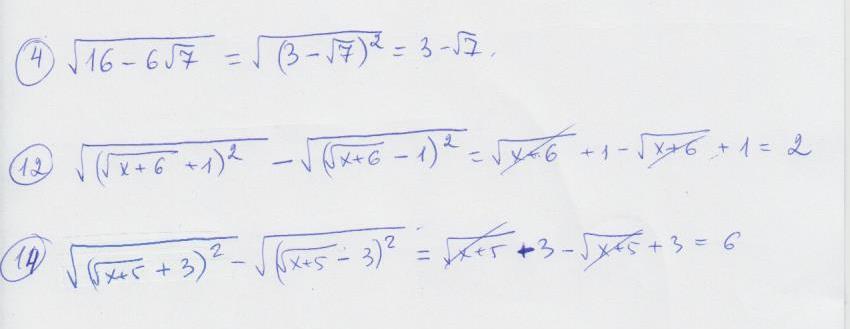 ④ √(16 - 6√7) = √((3 - √7)²) = 3 - √7.
⑫ √((√(x+6) + 1)²) - √((√(x+6) - 1)²) = √(x+6) + 1 - √(x+6) + 1 = 2
⑭ √((√(x+5) + 3)²) - √((√(x+5) - 3)²) = √(x+5) + 3 - √(x+5) + 3 = 6